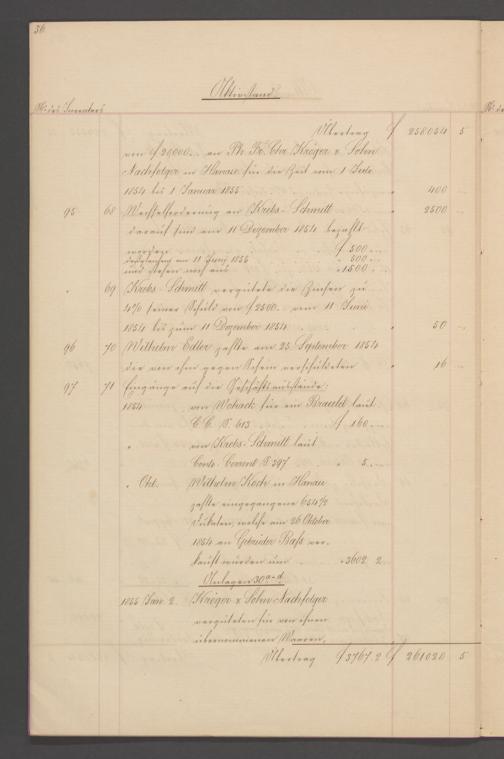 36.
Aktivstand
No. des Inventars
Übertrag f 258054 5
von f 20000.– an Ph. Fr. Chr. Kröger & Sohn
Nachfolger in Hanau für die Zeit vom 1 Jede
1854 bis 1 Januar 1855 " 400 –
95 68 Wechselforderung an Krebs-Schmitt " 2500 –
darauf sind am 11 Dezember 1854 bezahlt
worden f 500.–
desgleichen am 11 Juni 1855 " 500 –
und stehen noch aus " 1500 –
" 69 Krebs-Schmitt vergütete die Zinsen zu
4% seiner Schuld von f 2500.– vom 11 Juni
1854 bis zum 11 Dezember 1854 " 50 –
96 70 Wilhelm Edler zahlte am 25 September 1854
die von ihm gegen Schein verschuldeten " 16 –
97 71 Eingänge auf die Geschäftsausstände:
1854 von Wohack für ein Bracelet laut
C. C. S. 613 f 160.–
" von Krebs-Schmitt laut
Conto-Corrent S. 397 " 5.–
" Okt. Wilhelm Koch in Hanau
zahlte eingegangene 654 1/2
Dukaten, welche am 26 Oktober
1854 an Gebrüder Bass ver-
kauft wurden um " 3602. 2
Anlagen 30 a-d
1855 Jan. 2 Kröger & Sohn Nachfolger
vergüteten für von ihnen
übernommenen Waaren,
Übertrag f 3767. 2 f 261020 5